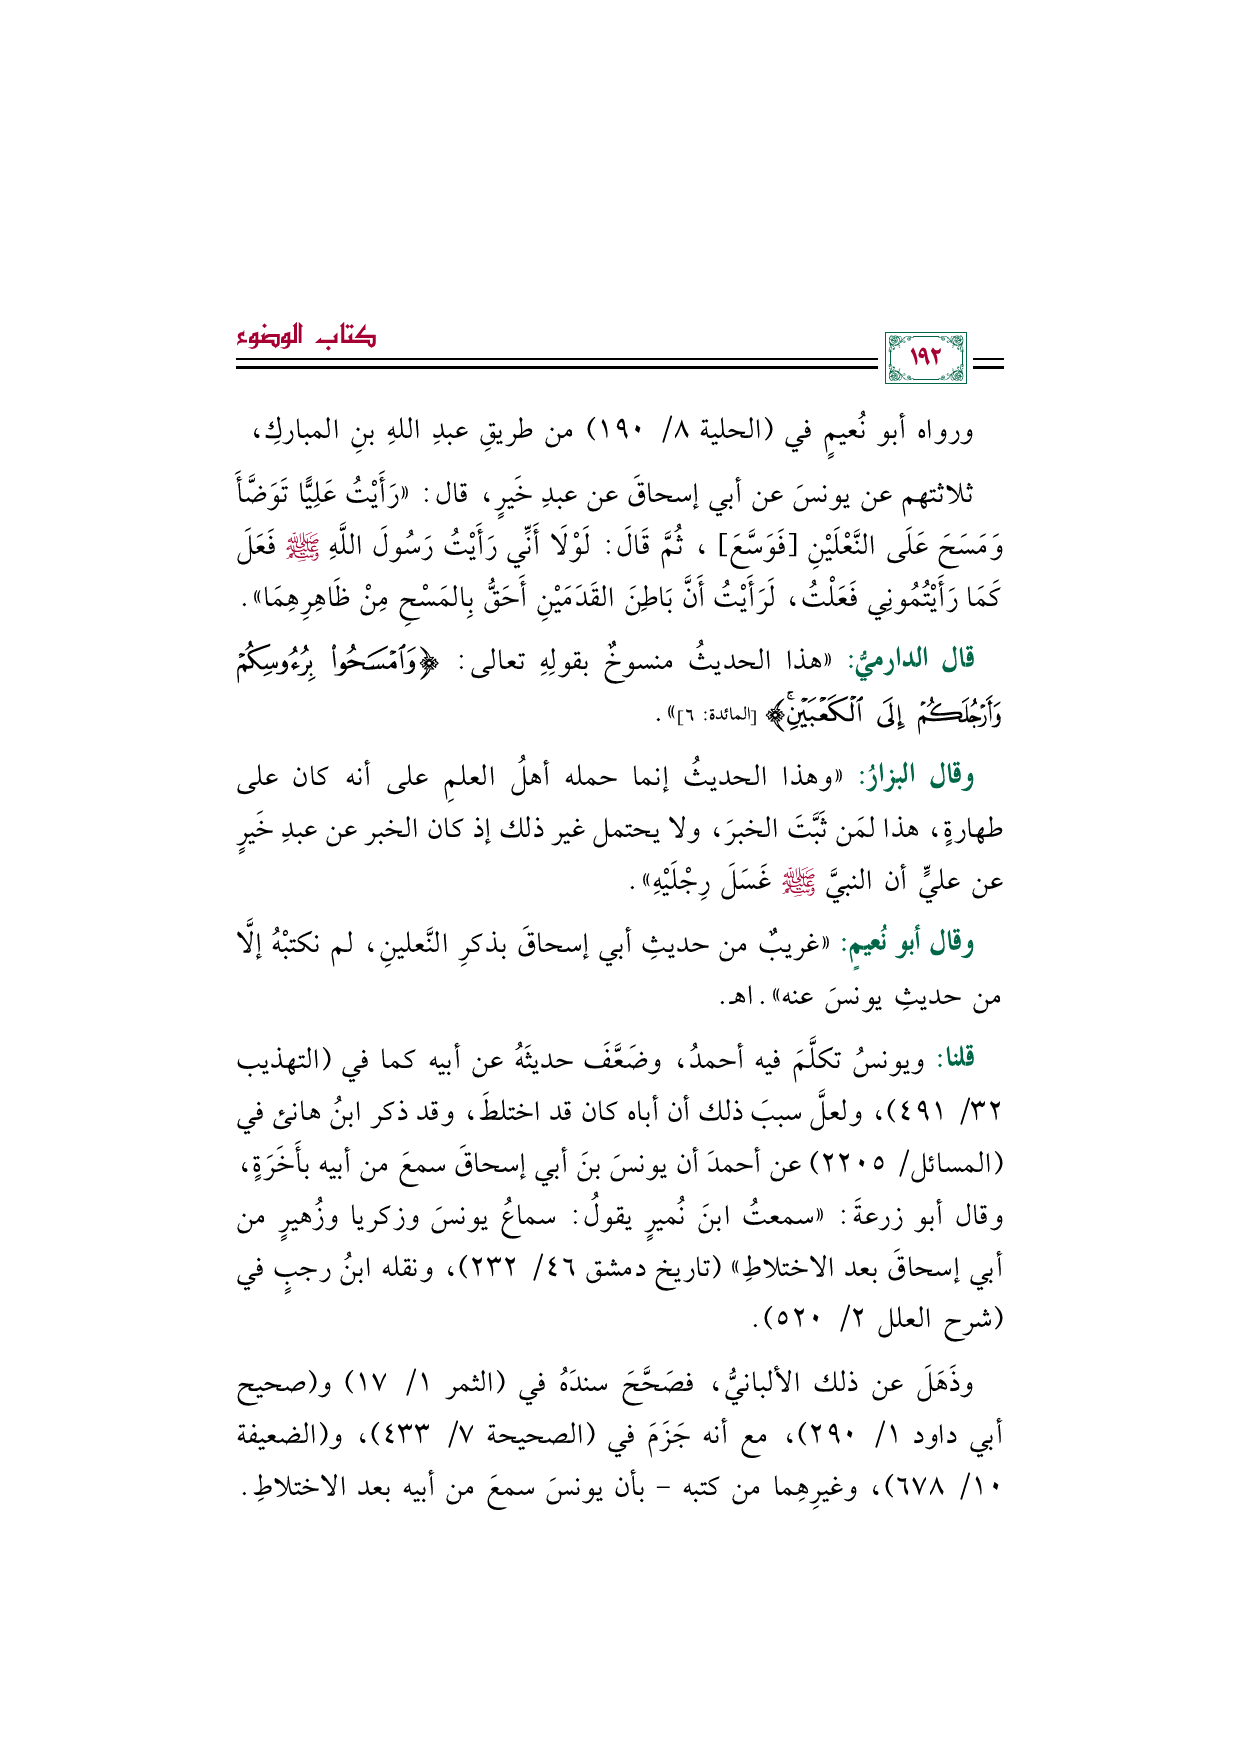 كتاب الوضوء
١٩٢
ورواه أبو نُعيمٍ في (الحلية ٨/ ١٩٠) من طريقِ عبدِ اللهِ بنِ المباركِ،
ثلاثتهم عن يونسَ عن أبي إسحاقَ عن عبدِ خَيرٍ، قال: «رَأَيْتُ عَلِيًّا تَوَضَّأَ
وَمَسَحَ عَلَى النَّعْلَيْنِ [فَوَسَّعَ] ، ثُمَّ قَالَ: لَوْلَا أَنِّي رَأَيْتُ رَسُولَ اللَّهِ ﷺ فَعَلَ
كَمَا رَأَيْتُمُونِي فَعَلْتُ، لَرَأَيْتُ أَنَّ بَاطِنَ القَدَمَيْنِ أَحَقُّ بِالمَسْحِ مِنْ ظَاهِرِهِمَا».
قال الدارميُّ: «هذا الحديثُ منسوخٌ بقولِهِ تعالى: ﴿وَٱمۡسَحُواْ بِرُءُوسِكُمۡ
وَأَرۡجُلَكُمۡ إِلَى ٱلۡكَعۡبَيۡنِۚ﴾ [المائدة: ٦]».
وقال البزارُ: «وهذا الحديثُ إنما حمله أهلُ العلمِ على أنه كان على
طهارةٍ، هذا لمَن ثَبَّتَ الخبرَ، ولا يحتمل غير ذلك إذ كان الخبر عن عبدِ خَيرٍ
عن عليٍّ أن النبيَّ ﷺ غَسَلَ رِجْلَيْهِ».
وقال أبو نُعيمٍ: «غريبٌ من حديثِ أبي إسحاقَ بذكرِ النَّعلينِ، لم نكتبْهُ إلَّا
من حديثِ يونسَ عنه». اهـ.
قلنا: ويونسُ تكلَّمَ فيه أحمدُ، وضَعَّفَ حديثَهُ عن أبيه كما في (التهذيب
٣٢/ ٤٩١)، ولعلَّ سببَ ذلك أن أباه كان قد اختلطَ، وقد ذكر ابنُ هانئ في
(المسائل/ ٢٢٠٥) عن أحمدَ أن يونسَ بنَ أبي إسحاقَ سمعَ من أبيه بأَخَرَةٍ،
وقال أبو زرعةَ: «سمعتُ ابنَ نُميرٍ يقولُ: سماعُ يونسَ وزكريا وزُهيرٍ من
أبي إسحاقَ بعد الاختلاطِ» (تاريخ دمشق ٤٦/ ٢٣٢)، ونقله ابنُ رجبٍ في
(شرح العلل ٢/ ٥٢٠).
وذَهَلَ عن ذلك الألبانيُّ، فصَحَّحَ سندَهُ في (الثمر ١/ ١٧) و(صحيح
أبي داود ١/ ٢٩٠)، مع أنه جَزَمَ في (الصحيحة ٧/ ٤٣٣)، و(الضعيفة
١٠/ ٦٧٨)، وغيرِهِما من كتبه – بأن يونسَ سمعَ من أبيه بعد الاختلاطِ.